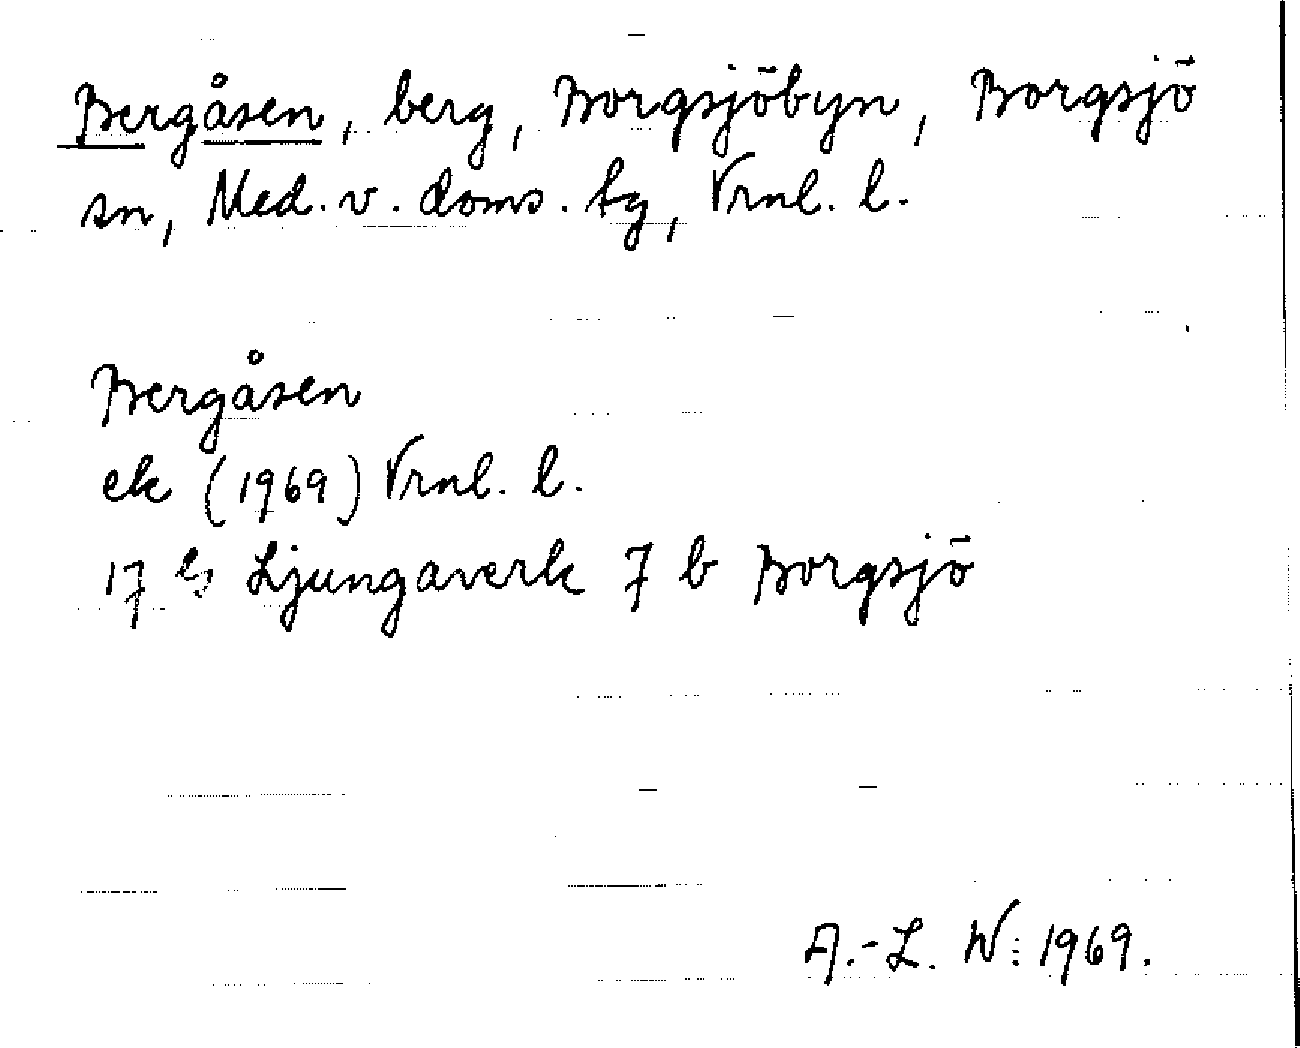 Bergåsen, berg, Borgsjöbyn, Borgsjö
sn, Med. v. doms. tg, Vrnl. l.
Bergåsen
ek (1969) Vrnl. l.
17 Ljungaverk 7 b Borgsjö
A.-L. W. 1969.